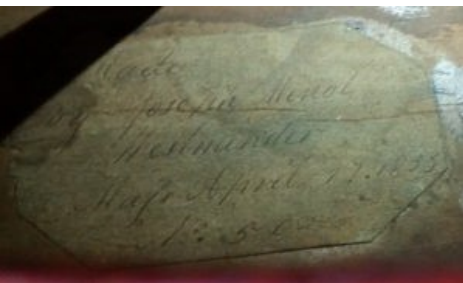 Made
by Joseph Minot
Westminster
Mass April 17. 1833